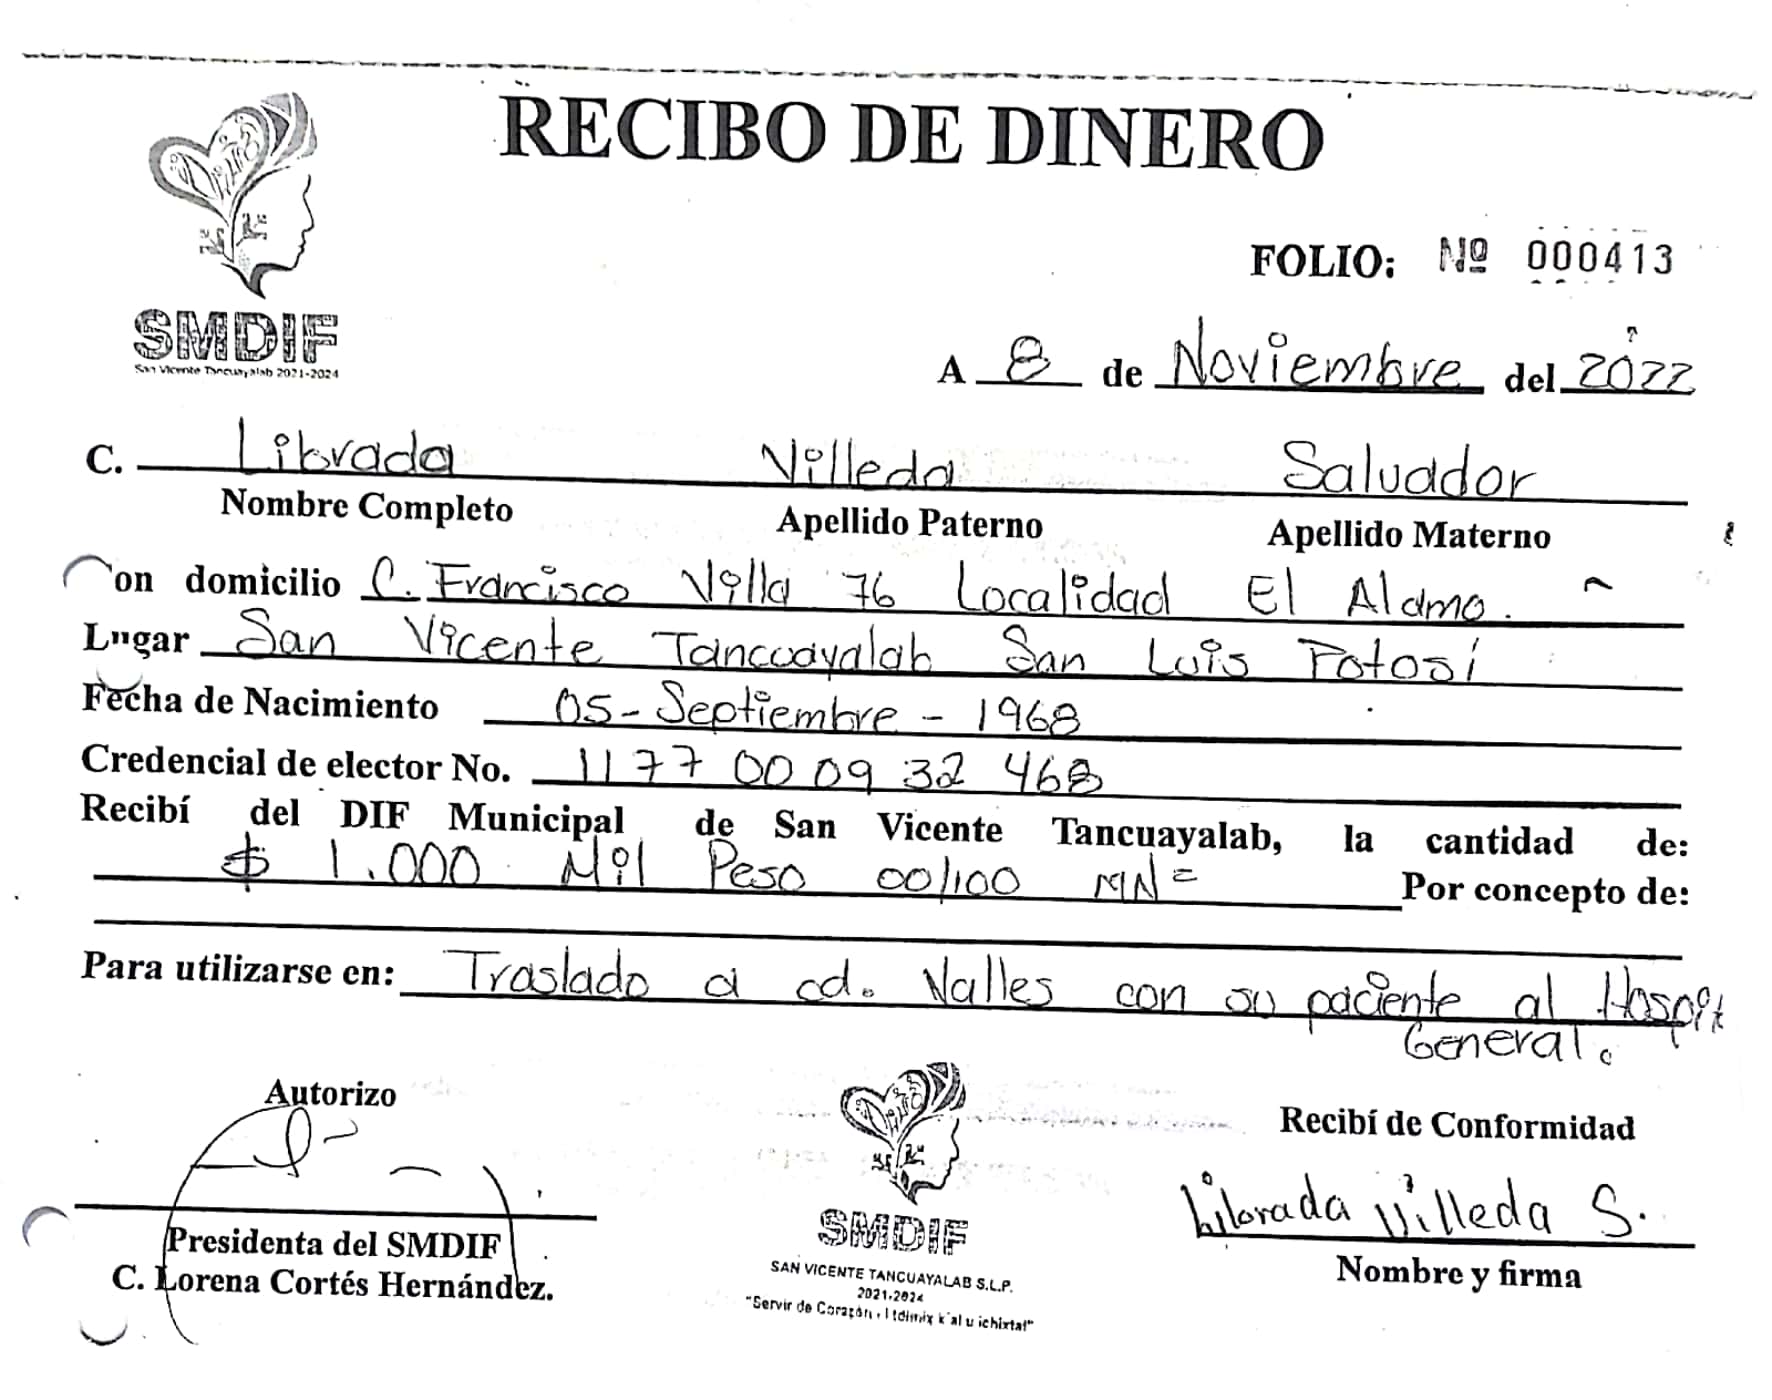 RECIBO DE DINERO
FOLIO: Nº 000413
SMDIF
San Vicente Tancuayalab 2021-2024
A 8 de Noviembre del 2022
C. Librada Villeda Salvador
Nombre Completo Apellido Paterno Apellido Materno
Con domicilio C. Francisco Villa 76 Localidad El Alamo.
Lugar San Vicente Tancuayalab San Luis Potosí
Fecha de Nacimiento 05-Septiembre-1968
Credencial de elector No. 1177 00 09 32 468
Recibí del DIF Municipal de San Vicente Tancuayalab, la cantidad de:
$ 1.000 Mil Peso 00/100 MN= Por concepto de:
Para utilizarse en: Traslado a cd. Valles con su paciente al Hospit
General.
Autorizo
Recibí de Conformidad
Librada Villeda S.
Presidenta del SMDIF
C. Lorena Cortés Hernández.
SMDIF
SAN VICENTE TANCUAYALAB S.L.P.
2021-2024
"Servir de Corazón
Nombre y firma